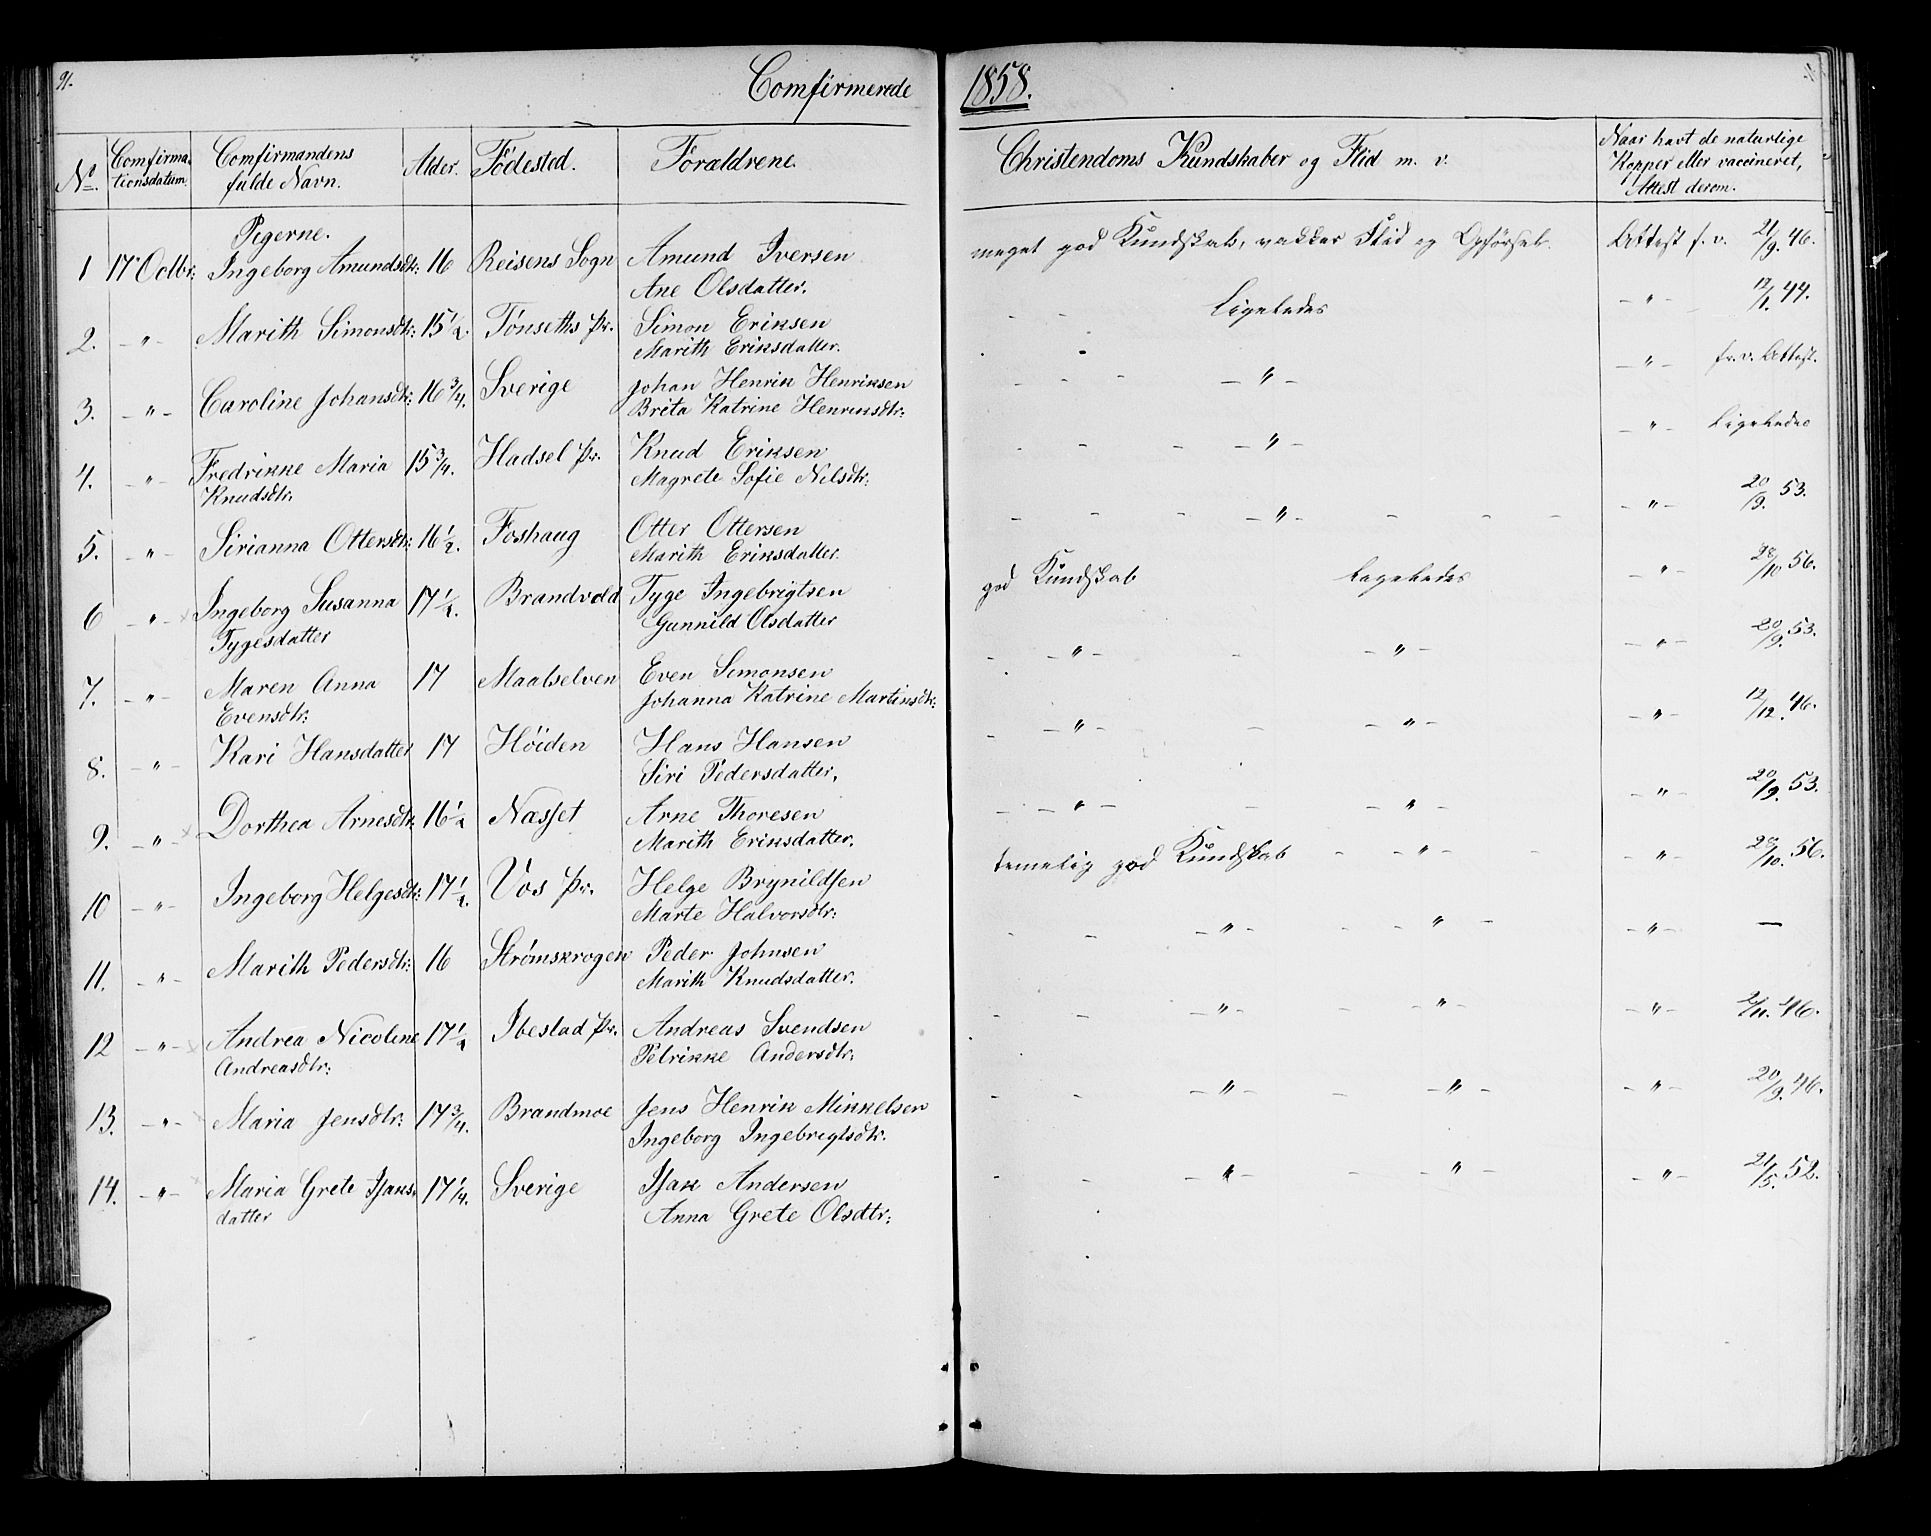 91.
Comfirmerede 1858.
No. Comfirmationsdatum. Comfirmandens fulde Navn. Alder. Födested. Forældrene. Christendoms Kundskaber og Flid m. v. Naar havt de naturlige Kopper eller vaccineret, Attest derom.
Pigerne.
1 17 Octbr: Ingeborg Amundsdtr: 16 Reisens Sogn Amund Iversen Ane Olsdatter. meget god Kundskab, vakker Flid og Opförsel. Attest f. v. 21/9. 46.
2. - " - Marith Simonsdtr: 15 1/2. Tönseths Pr. Simon Eriksen Marith Eriksdatter. - - Ligeledes - " - 12/1. 44.
3. - " - Caroline Johansdtr: 16 3/4. Sverige Johan Henrik Henriksen Brita Katrine Henriksdtr: - - - - " - - " - fr. v. Attest.
4. - " - Fredrikke Maria Knudsdtr: 15 3/4. Hadsel Pr. Knud Eriksen Magrete Sofie Nilsdtr: - - - - " - - " - Ligeledes
5. - " - Sirianna Ottersdtr: 16 1/2. Foshaug Otter Ottersen Marith Eriksdatter. - - - - " - - - - - " - 20/9. 53.
6 - " - Ingeborg Susanna Tygesdatter 17 1/2. Brandvold Tyge Ingebrigtsen Gunnild Olsdatter god Kundskab Ligeledes - " - 28/10. 56.
7. - " - Maren Anna Evensdtr: 17 Maalselven Even Simonsen Johanna Katrine Martinsdtr: - - " - - - " - - " - 20/9. 53.
8. - " - Kari Hansdatter 17 Höiden Hans Hansen Siri Pedersdatter, - - " - - - " - - " - 12/12. 46.
9. - " - Dorthea Arnesdtr 16 1/2 Næsset Arne Thoresen Marith Eriksdatter. - - " - - - " - - " - 20/9. 53.
10 - " - Ingeborg Helgesdtr: 17 1/2. Vos Pr. Helge Brynildsen Marte Halvorsdtr: temelig god Kundskab - - " - - - " - 28/10. 56.
11. - " - Marith Pedersdtr: 16 Strömskrogen Peder Johnsen Marith Knudsdatter. - - - " - - - " - - " - —
12 - " - Andrea Nicoline Andreasdtr: 17 1/2 Ibestad Pr. Andreas Svendsen Petrikke Andersdtr: - - - " - - - " - - " - 2/11. 46.
13. - " - Maria Jensdtr: 17 3/4. Brandmoe Jens Henrik Mikkelsen Ingeborg Ingebrigtsdtr. - - - " - - " - - " - 20/9. 46.
14. - " - Maria Grete Isaksdatter 17 1/4. Sverige Isak Andersen Anna Grete Olsdtr: - - - " - - - " - - " - 21/5. 52.